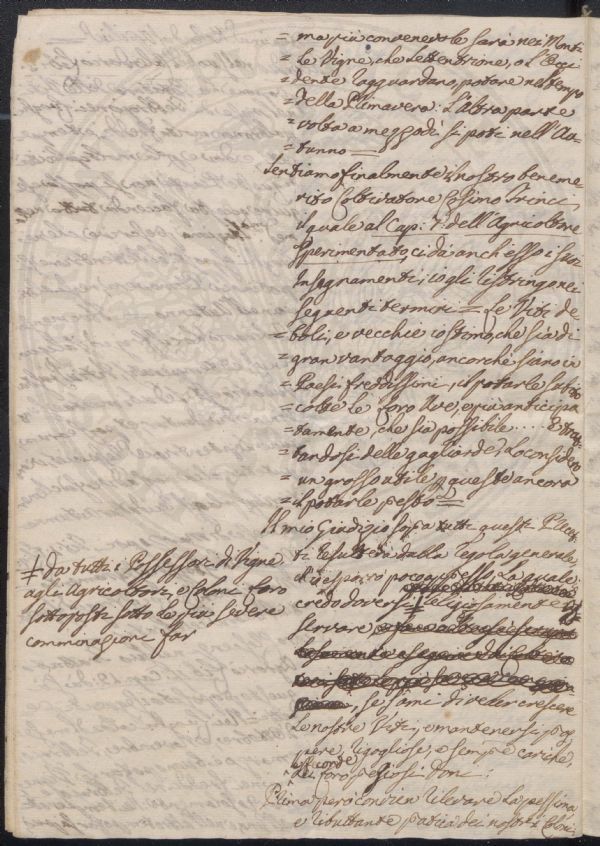 = ma più convenevole sarà nei Monti
= le Vigne, che Settentrione, o l'Occi
= dente ragguardano, potare nel tempo
= della Primavera: l'altra parte
= volta a mezzodì si poti nell'Au-
= tunno =
Sentiamo finalmente il nostro beneme-
rito Coltivatore Cosimo Trinci,
il quale al Cap: 7. dell'Agricoltore
sperimentato, ci dà anch'esso i suoi
Insegnamenti, i quali ristringo nei
seguenti termini = Le Viti de
= boli, e vecchie io stimo, che sia di
= gran vantaggio, ancorchè siano in
= Paesi freddissimi, il potarle subito
= colte le loro Uve, e più anticipa
= tamente, che sia possibile .... E trat-
= tandosi delle gagliarde, lo considero
= un grosso utile, p queste ancora
= il potarle presto =
Il mio Giudizio sopra tutti questi Precet-
ti resulterà dalla regola generale
che esporrò poco appresso, la quale
credo doversi ‡ religiosamente os-
servare
, se sarà di veder crescere
le nostre Viti, e mantenersi sem
pre rigogliose, e sempre cariche
dei loro preziosi doni:
Prima però convien rilevare la pessima
e ributtante pratica dei nostri Coloni
‡ da tutti i Possessori di Vigne
agli Agricoltori, e Coloni loro
sottoposti sotto le più severe
comminazioni far